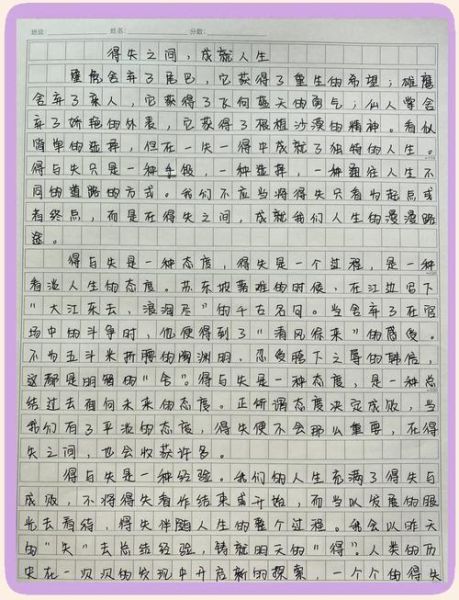 班级 姓名: 分数:
得失之间，成就人生
壁虎舍弃了尾巴，它获得了重生的希望；雄鹰
舍弃了亲人，它获得了飞向蓝天的勇气；仙人掌舍
弃了娇艳的外表，它获得了根植沙漠的精神。看似
简单的选择，但在一失一得中成就了独特的人生。
得与失只是一种手段，一种选择，一种通往人生不
同的道路的方式。我们不应当将得失只看为起点或
者终点，而是在得失之间，成就我们人生的漫漫路
途。
得与失是一种态度，得失是一个过程，是一种
看淡人生的态度。苏东坡落难的时候，在江边写下
“大江东去，浪淘尽”的千古名句。当舍弃了在官
场中的斗争时，他便得到了“清风徐来”的感受。
不为五斗米折腰的陶渊明，忍受胯下之辱的韩信，
这都是明智的“舍”。得与失是一种态度，是一种总
结过去面向未来的态度。正所谓态度决定成败，当
我们有了平淡的态度，得失便不会那么重要，在得
失之间，也会收获许多。
得与失是一种经验。我们的人生充满了得失与
成败，不将得失看作结束或开始，而当以发展的眼
光去看待，得失伴随人生的整个过程。我会以昨天
的“失”去总结经验，铸就明天的“得”。人类的历
史在一次次的发现中开启新的探索，一个个由得失